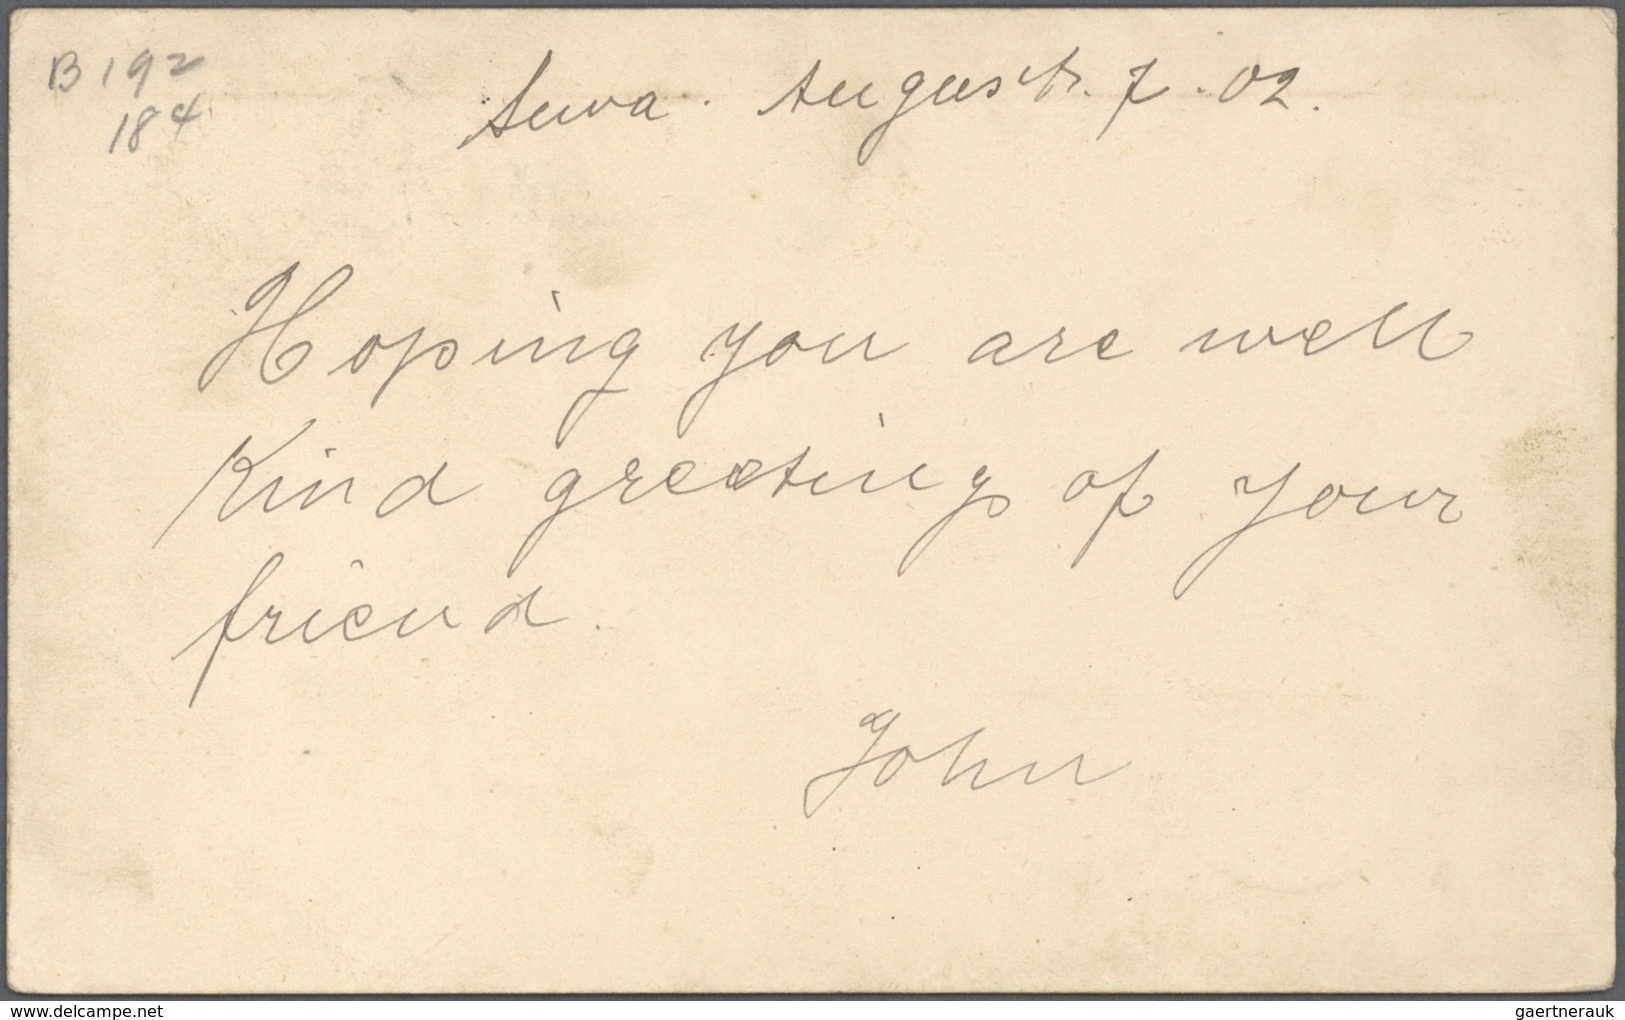 B 192
184
Suva. August. 7. 02.
Hoping you are well
Kind greetings of your
friend.
John
www.delcampe.net
gaertnerauk